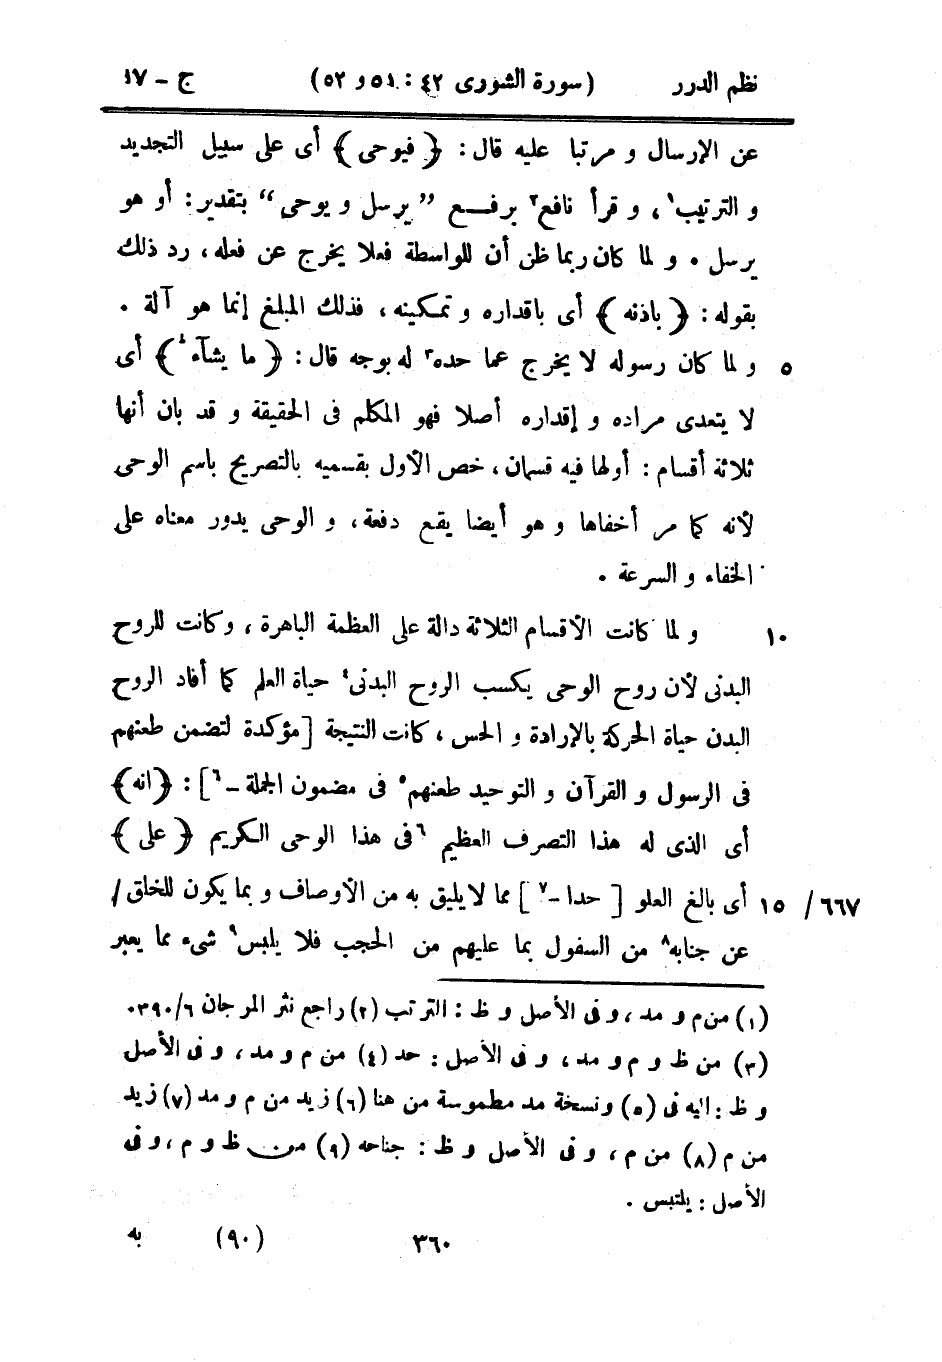 نظم الدرر (سورة الشورى ٤٢ : ٥١ و ٥٢) ج – ١٧
عن الإرسال و مرتبا عليه قال : ﴿ فيوحى ﴾ أى على سبيل التجديد
و الترتيب١ ، و قرأ نافع٢ برفع ” يرسل و يوحى “ بتقدير : أو هو
يرسل . و لما كان ربما ظن أن للواسطة فعلا يخرج عن فعله ، رد ذلك
بقوله : ﴿ باذنه ﴾ أى باقداره و تمكينه ، فذلك المبلغ إنما هو آلة .
٥ و لما كان رسوله لا يخرج عما حده٣ له بوجه قال : ﴿ ما يشآء٤ ﴾ أى
لا يتعدى مراده و إقداره أصلا فهو المكلم فى الحقيقة و قد بان أنها
ثلاثة أقسام : أولها فيه قسمان ، خص الأول بقسميه بالتصريح باسم الوحى
لأنه كما مر أخفاها و هو أيضا يقع دفعة ، و الوحى يدور معناه على
الخفاء و السرعة .
١٠ و لما كانت الأقسام الثلاثة دالة على العظمة الباهرة ، وكانت للروح
البدنى لأن روح الوحى يكسب الروح البدنى٤ حياة العلم كما أفاد الروح
البدن حياة الحركة بالإرادة و الحس ، كانت النتيجة [ مؤكدة لتضمن طعنهم
فى الرسول و القرآن و التوحيد طعنهم٥ فى مضمون الجملة –٦ ] : ﴿ انه ﴾
أى الذى له هذا التصرف العظيم ٦فى هذا الوحى الكريم ﴿ على ﴾
٦٦٧ / ١٥ أى بالغ العلو [ حدا –٧ ] مما لا يليق به من الأوصاف و بما يكون للخلق /
عن جنابه٨ من السفول بما عليهم من الحجب فلا يلبس٩ شىء مما يعبر
(١) من م و مد ، و فى الأصل و ظ : الترتب (٢) راجع نثر المرجان ٦/ ٣٩٠.
(٣) من ظ و م و مد ، و فى الأصل : حد (٤) من م و مد ، و فى الأصل
و ظ : اليه فى (٥) و نسخة مد مطموسة من هنا (٦) زيد من م و مد (٧) زيد
من م (٨) من م ، و فى الأصل و ظ : جناحه (٩) من ظ و م ، و فى
الأصل : يلتبس .
٣٦٠ (٩٠) به